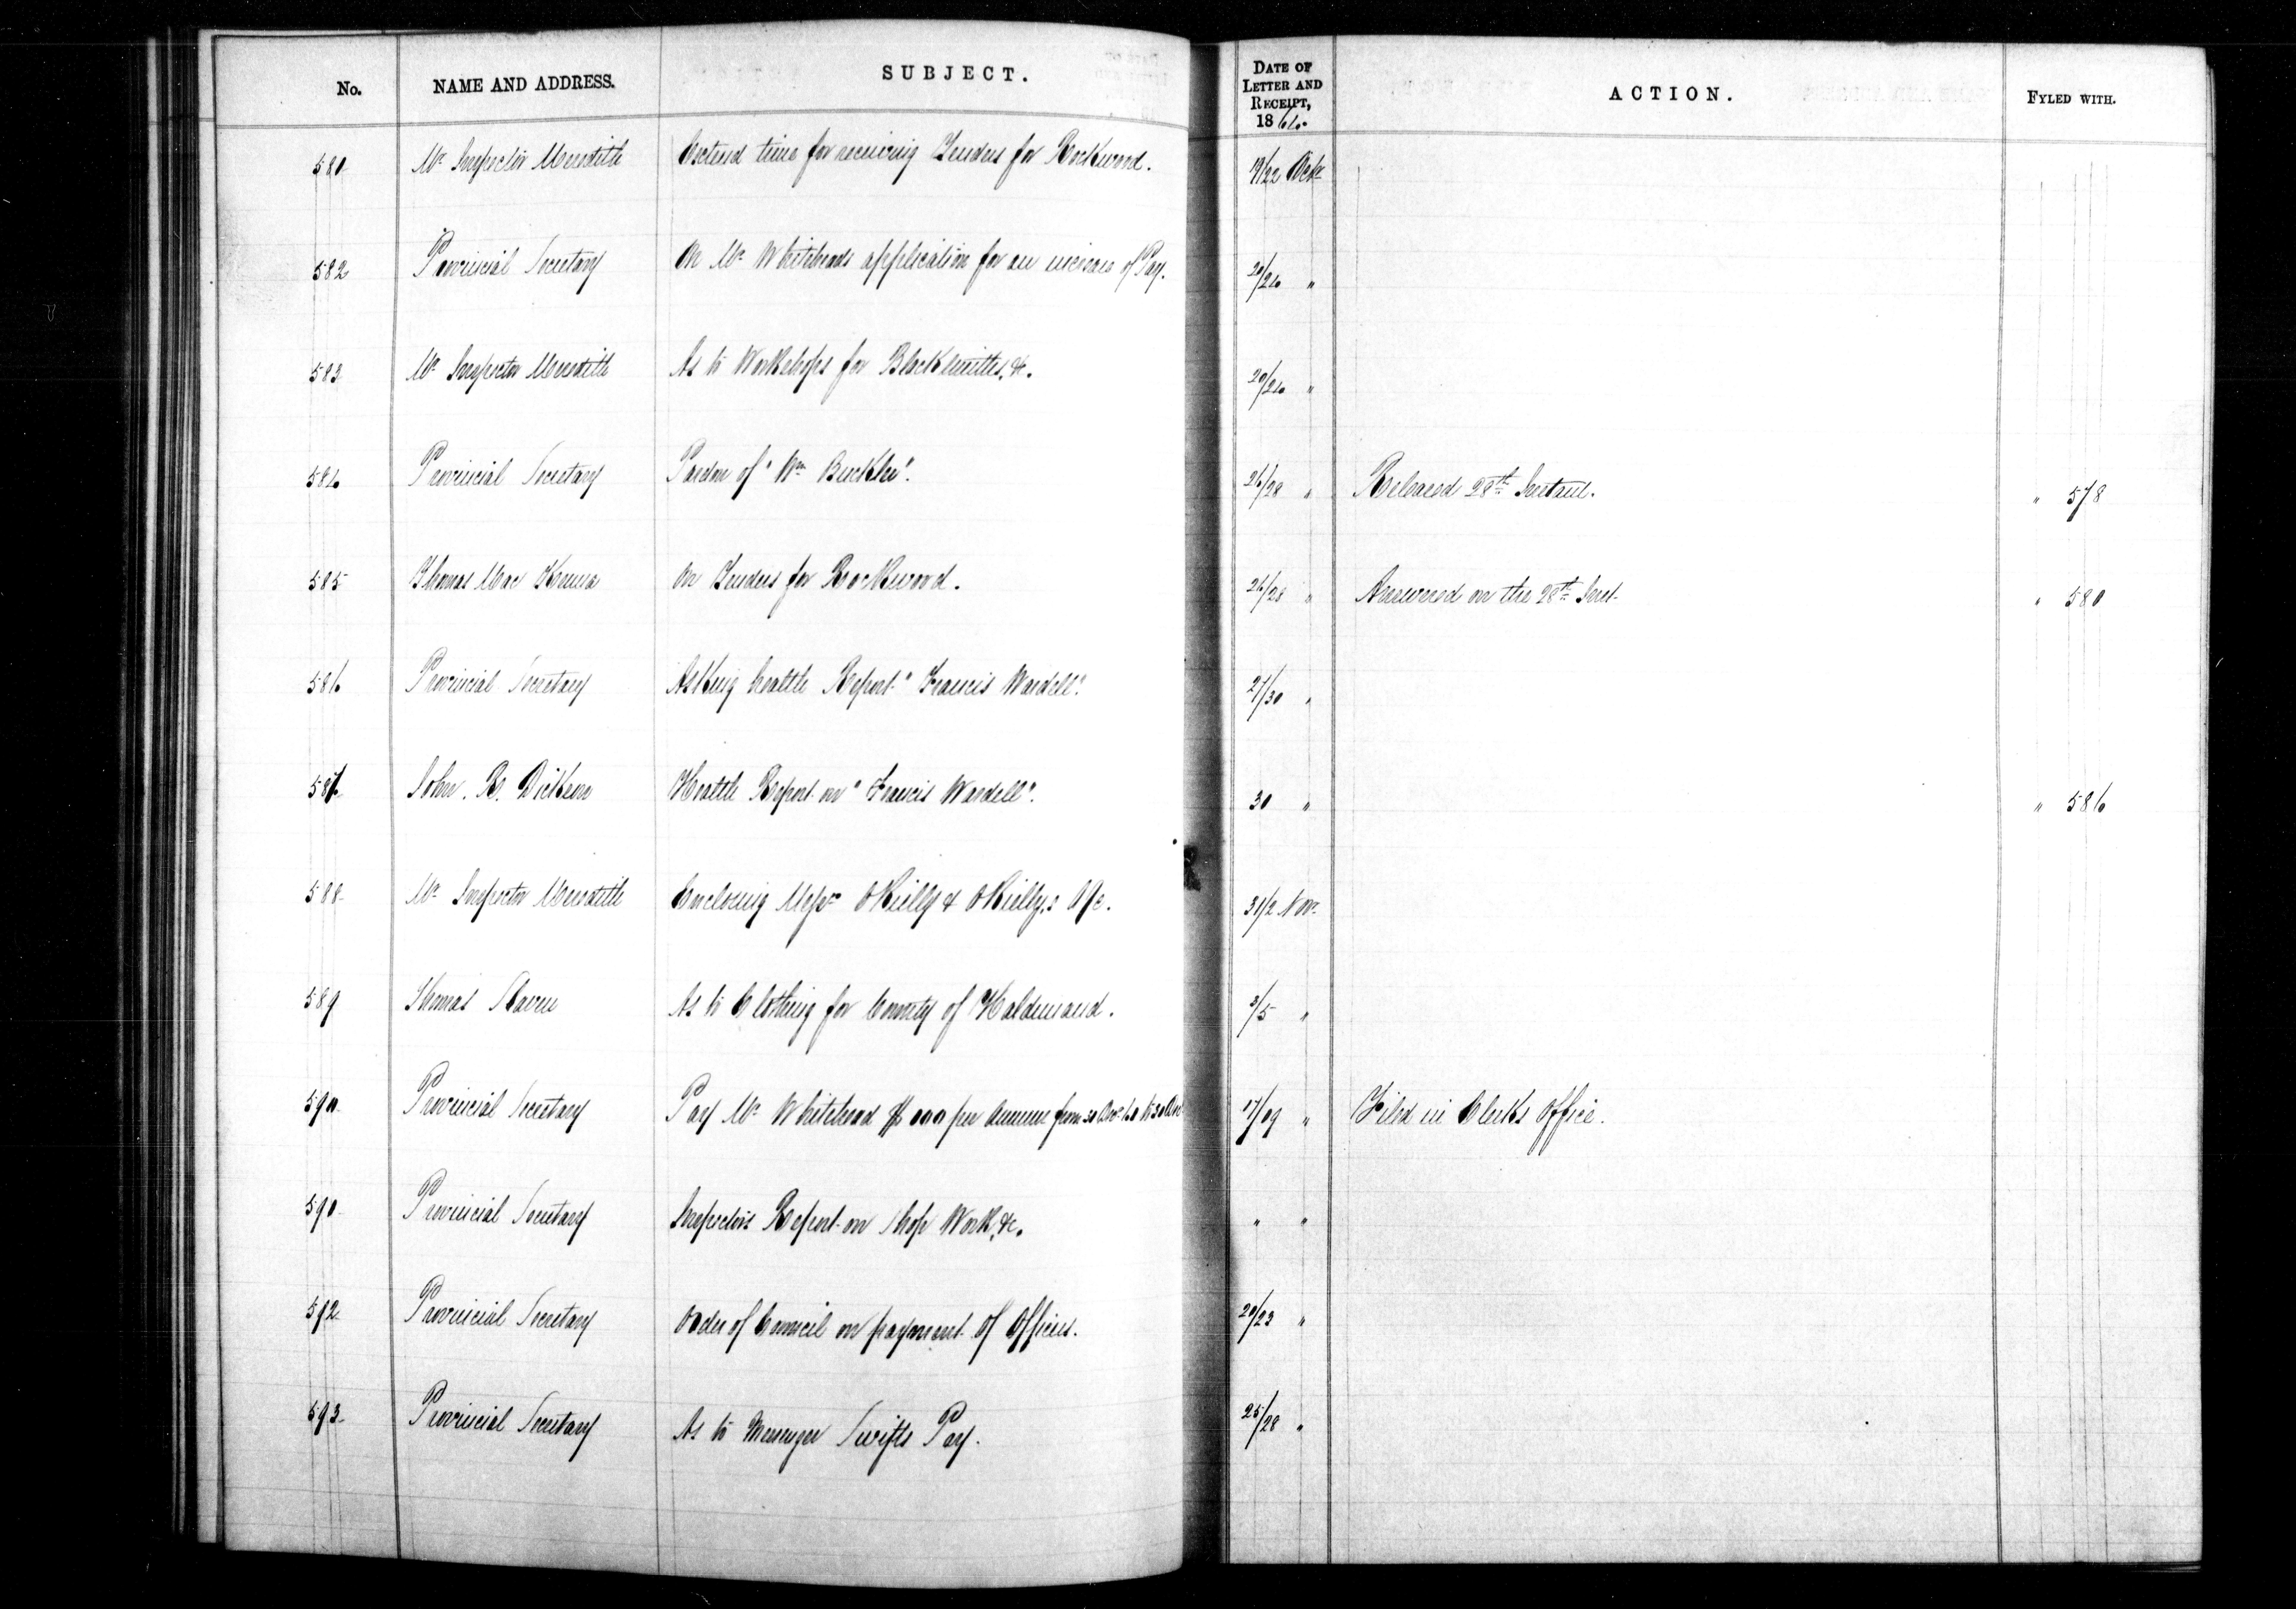 No. NAME AND ADDRESS. SUBJECT. DATE OF LETTER AND RECEIPT, 18 ACTION. FYLED WITH.
Mr Inspector Meredith Extend time for receiving Tenders for Rockwood. 19/22 Octr
582 Provincial Secretary On Mr Whiteheads application for an increase of Pay. "
583 Mr Inspector Meredith As to Workshops for Blacksmiths, &c. "
Provincial Secretary Pardon of "Wm Buckler". 26/28 " Released 28th Instant. " 578
585 Thomas Mac Kenna On Tenders for Rockwood. 26/28 " Answered on the 28th Inst. " 580
586 Provincial Secretary Asking health Report "Francis Wardell". 27/30 "
John. R. Dickson Health Report on "Francis Wardell". 30 " " 586
588 Mr Inspector Meredith Enclosing Messrs OReilly & OReilly's A/c. 31/2 Novr
589 Thomas As to Clothing for County of Haldimand. 3/5 "
590 Provincial Secretary Pay Mr Whitehead per Annum from 17/19 " Filed in Clerks Office.
Provincial Secretary Inspectors Report on Shop Work, &c. " "
592 Provincial Secretary Order of Council on payment of Officers. 20/23 "
593 Provincial Secretary As to Messenger Swifts Pay. 25/28 "